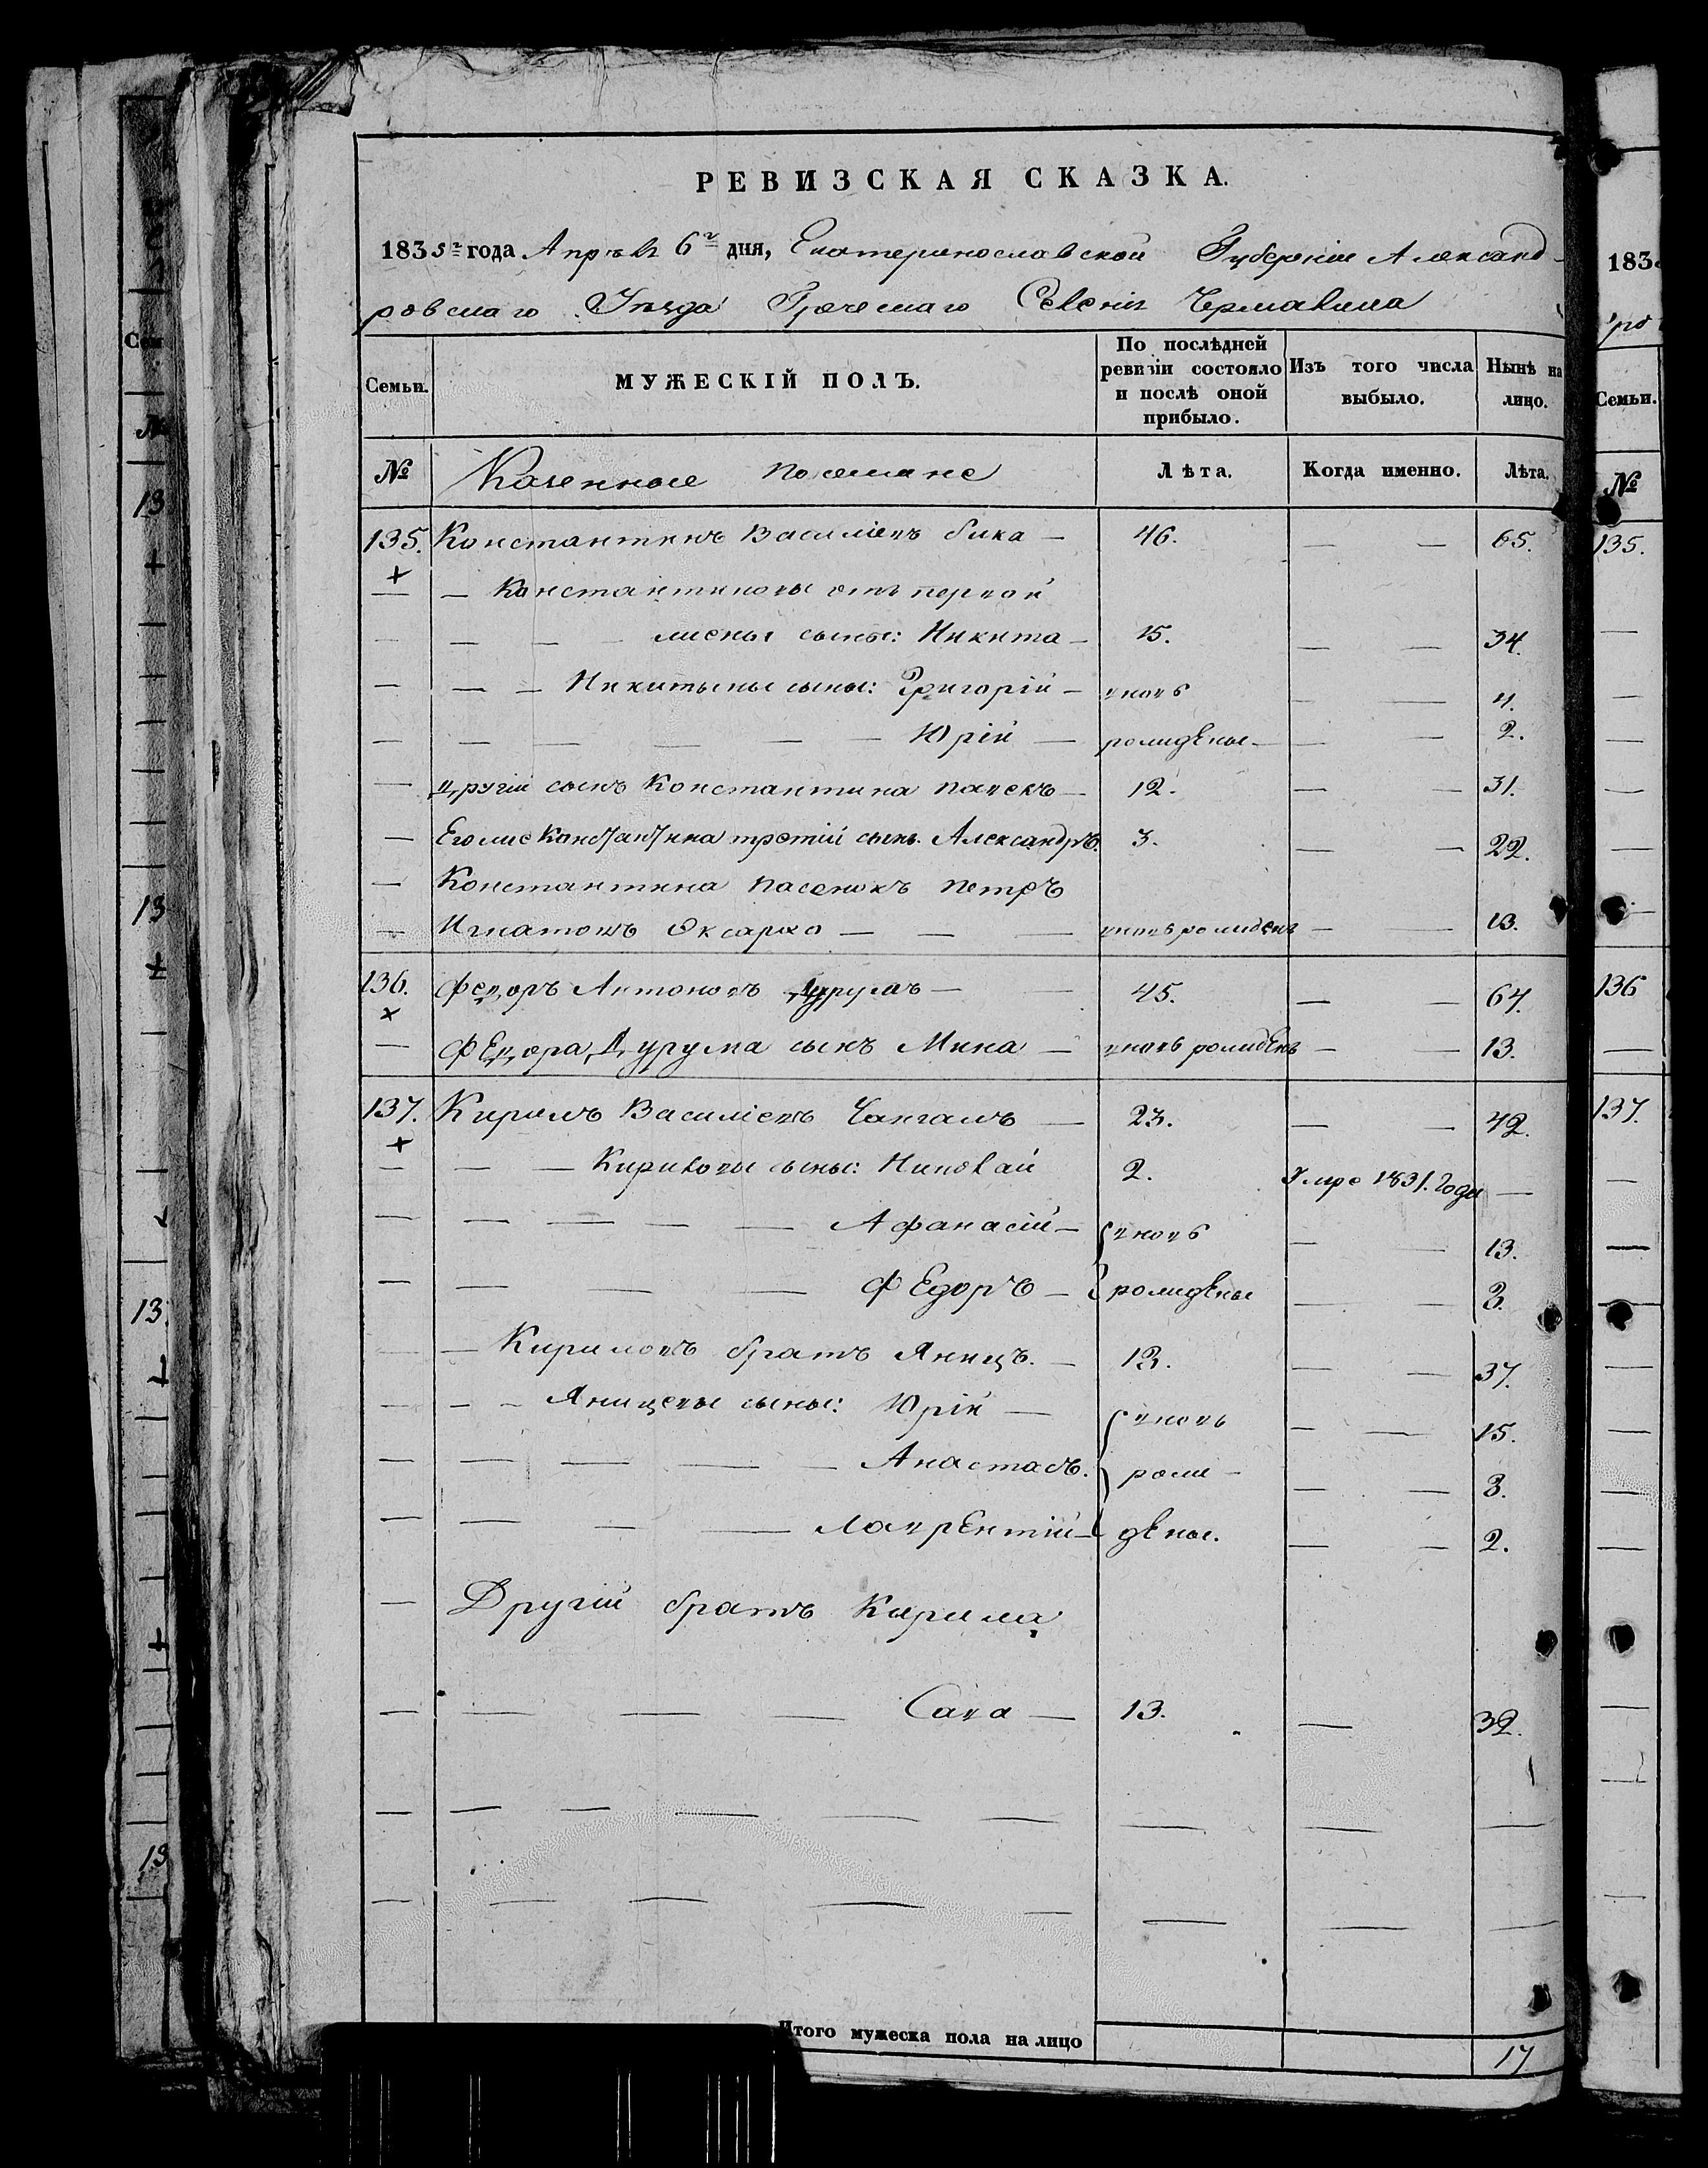 РЕВИЗСКАЯ СКАЗКА.
1835го года Апрѣля 6го дня, Екатеринославской Губерніи Александ-
ровскаго Уѣзда Греческаго Селенія Чермалика
Семьи. МУЖЕСКІЙ ПОЛЪ. По послѣдней ревизіи состояло и послѣ оной прибыло. Изъ того числа выбыло. Нынѣ на лицо.
№ Казенные поселяне Лѣта. Когда именно. Лѣта.
135. Константинъ Василіевъ Бика — 46. — — 65.
— Константиновы отъ первой
жены сыны: Никита — 15. — — 34.
Никитыны сыны: Григорій — вновь — — 4.
Юрій — рожденые — — 2.
другій сынъ Константина Павелъ — 12. — — 31.
Его же Константина третій сынъ Александръ. 3. — — 22.
Константина пасенокъ Петръ
Игнатовъ Оксархо — — — вновь рожденъ — — 13.
136. Федоръ Антоновъ Дурумъ — — 45. — — 64.
Федора Дурума сынъ Мина — вновь рожденъ — — 13.
137. Кирилъ Василіевъ Чангалъ — 23. — — 42.
Кириловы сыны: Николай 2. Умре 1831. Года —
Афанасій — вновь — — 13.
Федоръ — рожденые — — 3.
— Кириловъ братъ Яницъ. — 18. — — 37.
Яницевы сыны: Юрій — вновь — — 15.
Анастасъ. рож- — — 3.
Лаврентій — деные. — — 2.
Другій братъ Кирила
Сава — 13. — 32.
Итого мужеска пола на лицо 17
183
Семьи.
№
135.
136
137.
Сем
№
13
13
13
13